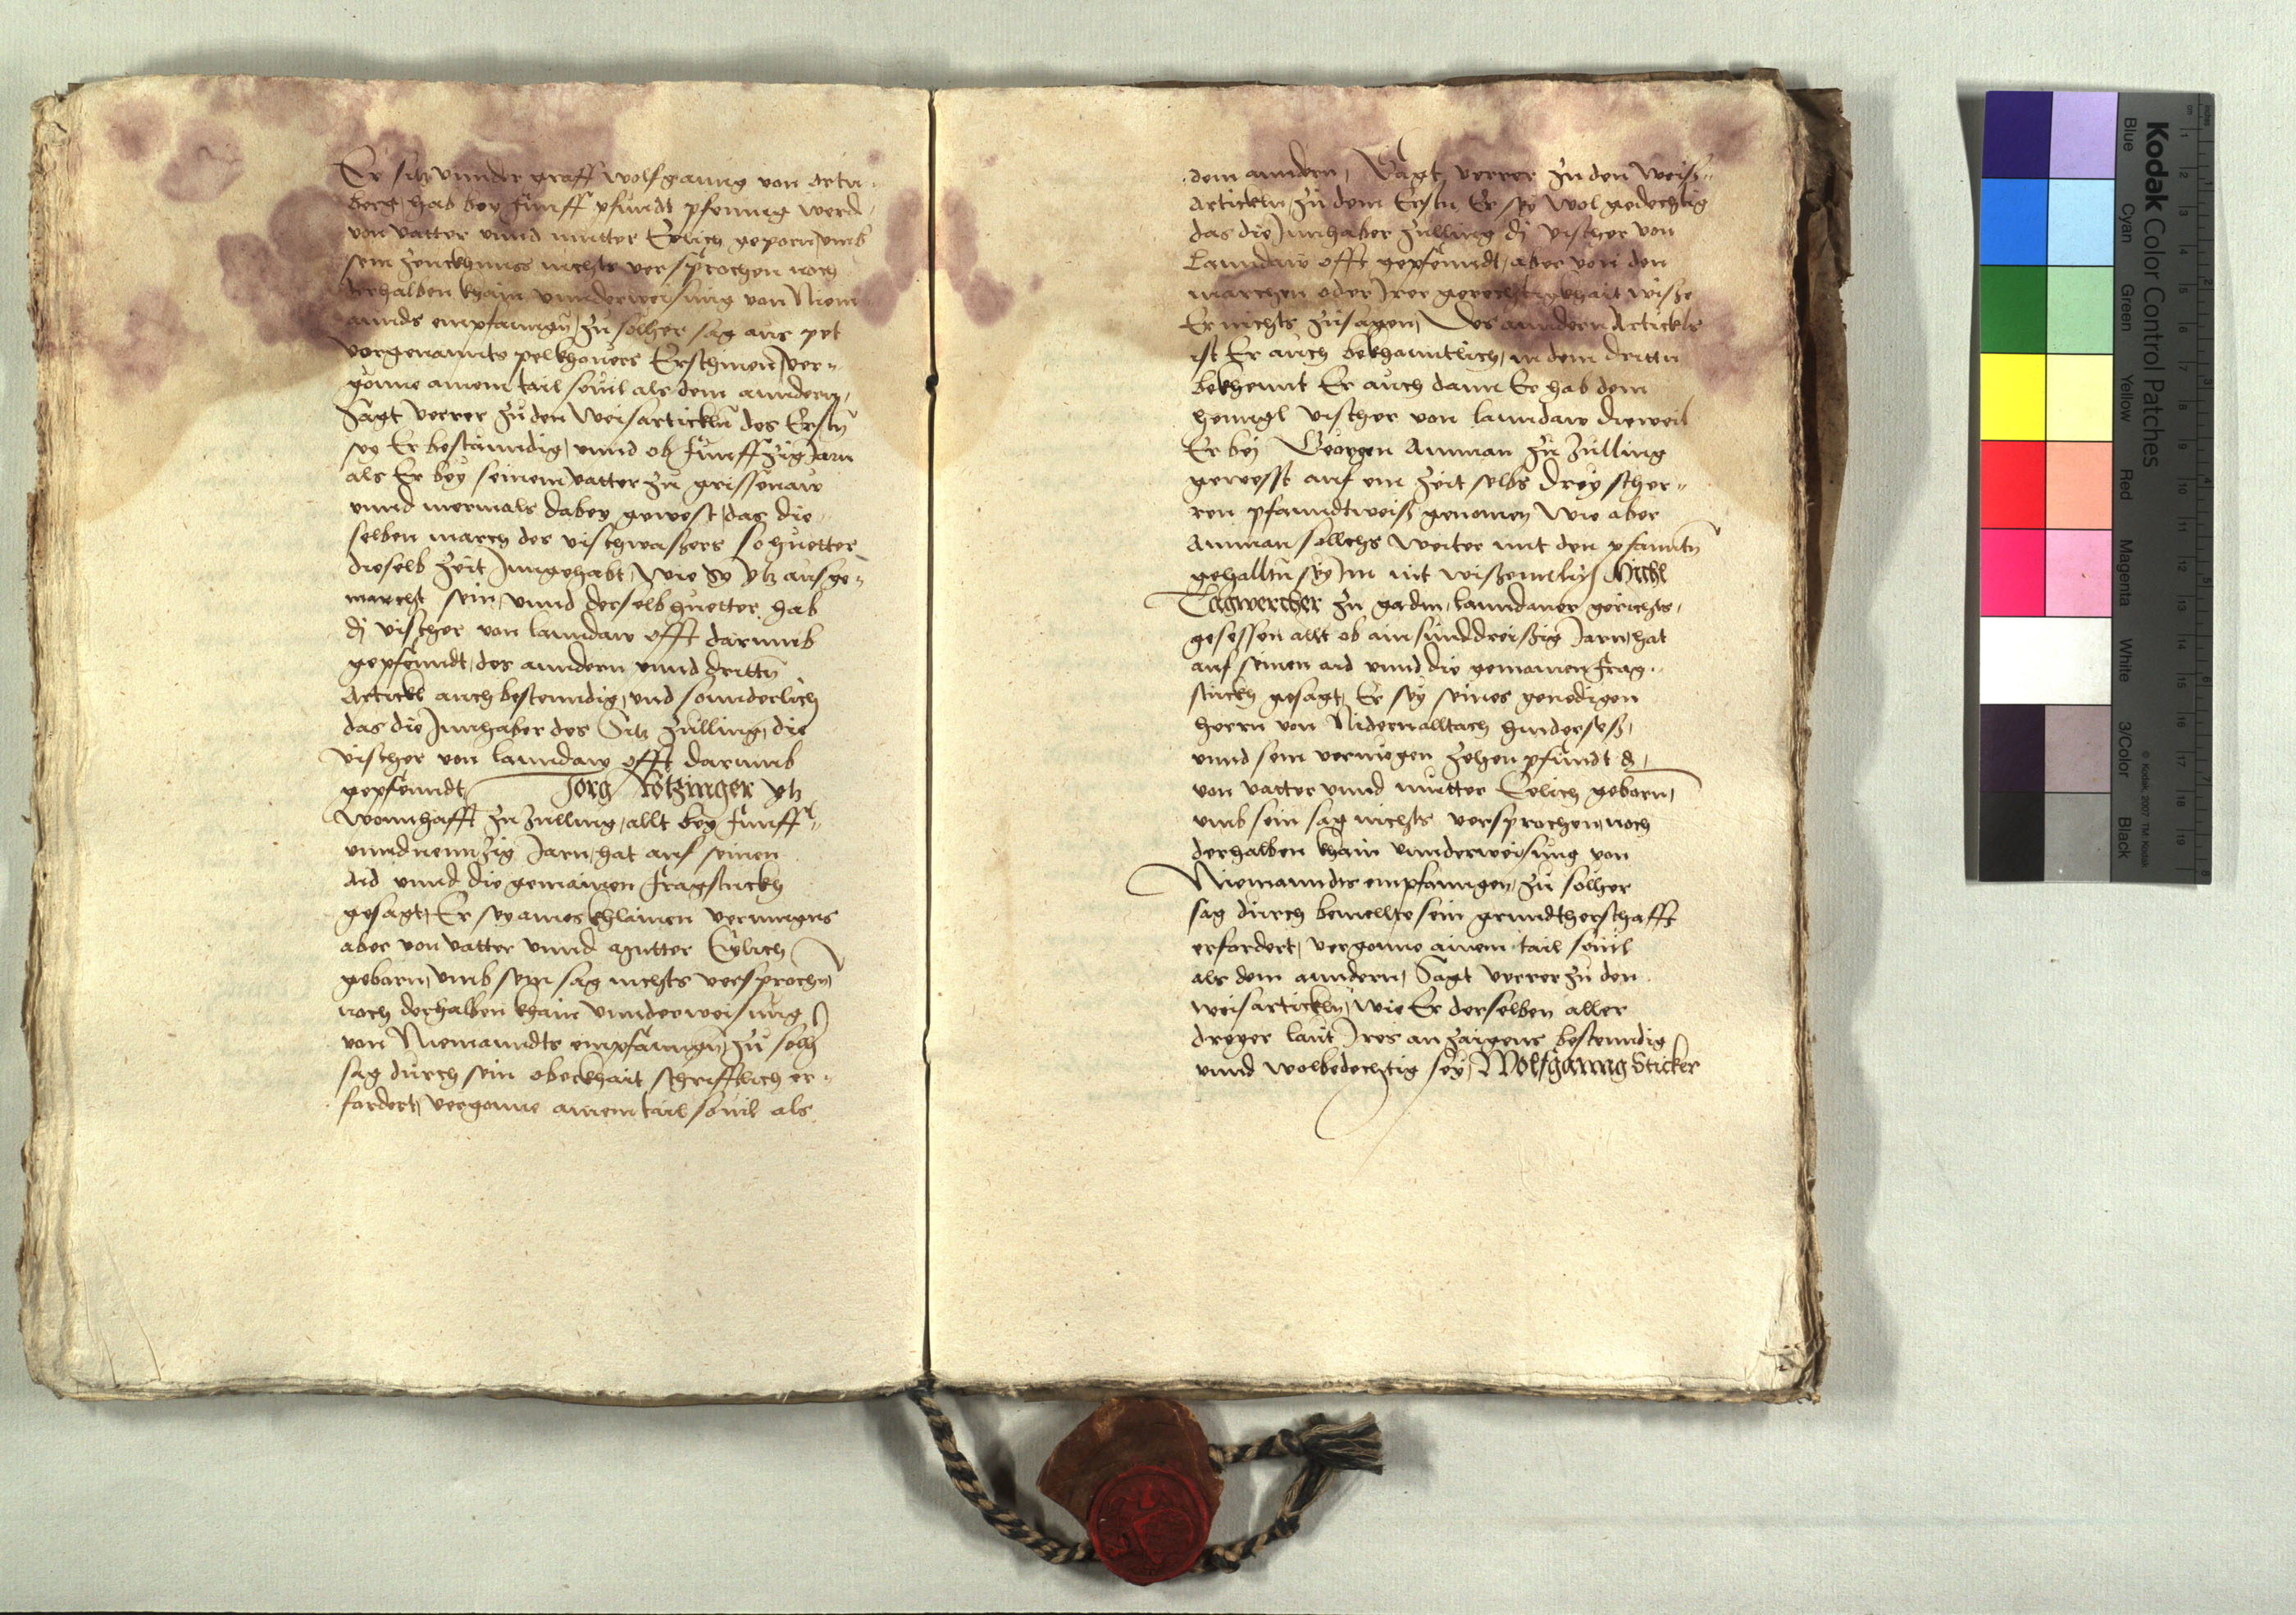 Er sitz vnnder graff wolfganng von ortn¬
berg, hab bey funff pfundt pfennig werd,
von vatter vnnd mutter Eelich geporn, vmb
sein zeuckhnuss nichts versprochen noch
derhalben khain vnnderweisung von Niem¬
annds empfanngn, zu sollher sag aus pet
vorgenannts pelkhouers Erschinen, ver¬
gonne ainem tail souil als dem anndern,
Sagt verrer zu den Weisarticklń des Erstń
sey Er bestanndig, vnnd ob funffzig Jarn
als Er bey seinem vatter zu grissenaw
vnnd mermals dabey gewest, das die¬
selben march des vischwassers so huetter
dieselb zeit Jnngehabt, Wie Sy ytz ausge¬
marcht sein, vnnd derselb huetter hab
dj vischer von lanndaw offt darumb
gepfenndt, des anndern vnnd drittń
Artickl auch bestenndig, vnd sonnderlich
das die Jnnhaber des Sitz zulling, die
vischer von lanndaw offt darumb
gepfenndt, Jorg Rotzinger ytz
Wonnhafft zu zulling, allt bey funff¬
vnndnennzig Jarn, hat auf seinen
Aid vnnd die gemainen fragstuckh
gesagt, Er sey aines khlainen vermugens
aber von vatter vnnd Mutter Eelich
geborn, vmb sein sag nichts versprochń
noch derhalben khain vnnderweisung
von Niemanndts empfanngń, zu solh
sag durch sein oberkhait schrifftlich er¬
fordert, vergonne ainem tail souil als
dem anndern, Sagt verrer zu den Weiß¬
Artickln, zu dem Erstn Er sey wol gedechtig
das die Jnnhaber zulling dj vischer von
Lanndaw offt gepfenndt, aber von den
marchen oder Jrer gerechtigkhait wisse
Er nichts zusagen, Des anndern Artickls
ist Er auch bekhanntlich, in dem drittn
bekhennt Er auch dann Er hab dem
henngl vischer von lanndaw dieweil
Er bey Georgen Amman zu zulling
gewesst auf ein zeit selbs drey scher¬
ren pfanndtweiß genomen Wie aber
Amman sollchs weiter mit den pfanntń
gehalltn sey Jm nit wissenntlich, Michl
Tagwercher zu gadm, lanndauer gerichts,
gesessen allt ob ainsunddreissig Jarn, hat
auf seinen aid vnnd die gemainen frag¬
stuckh gesagt, Er sey seines genedigen
herrn von Nidernalltach hindersess,
vnnd sein vermogen zehen pfundt d,
von vatter vnnd mutter Eelich geborn,
vmb sein sag nichts versprochen, noch
derhalben khain vnnderweisung von
Niemanndts empfanngen, zu sollher
sag durch bemellte sein grundtherschafft
erfordert, vergonne ainem tail souil
als dem anndern, Sagt verrer zu den
weisartickln, wie Er derselben aller
dreyer laut Jres anzaigens bestenndig
vnnd wolbedechtig sey, Wolfganng Sticker
Kodak Color Control Patches
Blue
Cyan
Green
Yellow
Red
Magenta
White
3/Color
Black
© Kodak, 2007 TM: Kodak